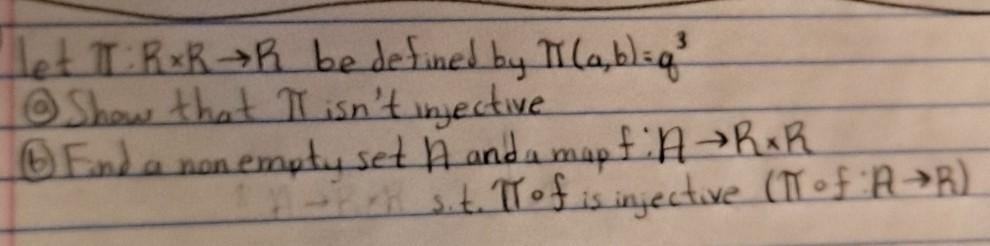 let π:R×R→R be defined by π(a,b)=a³
ⓐ Show that π isn't injective
ⓑ Find a nonempty set A and a map f:A→R×R
s.t. π∘f is injective (π∘f:A→R)